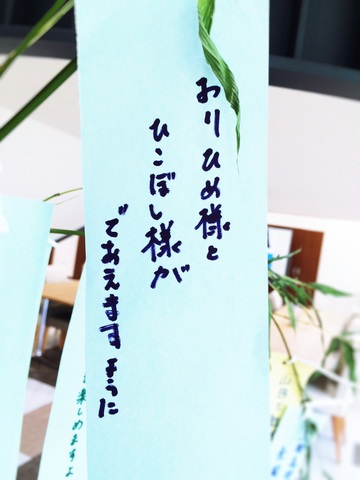 おりひめ様と
ひこぼし様が
であえますように
楽しめますよ